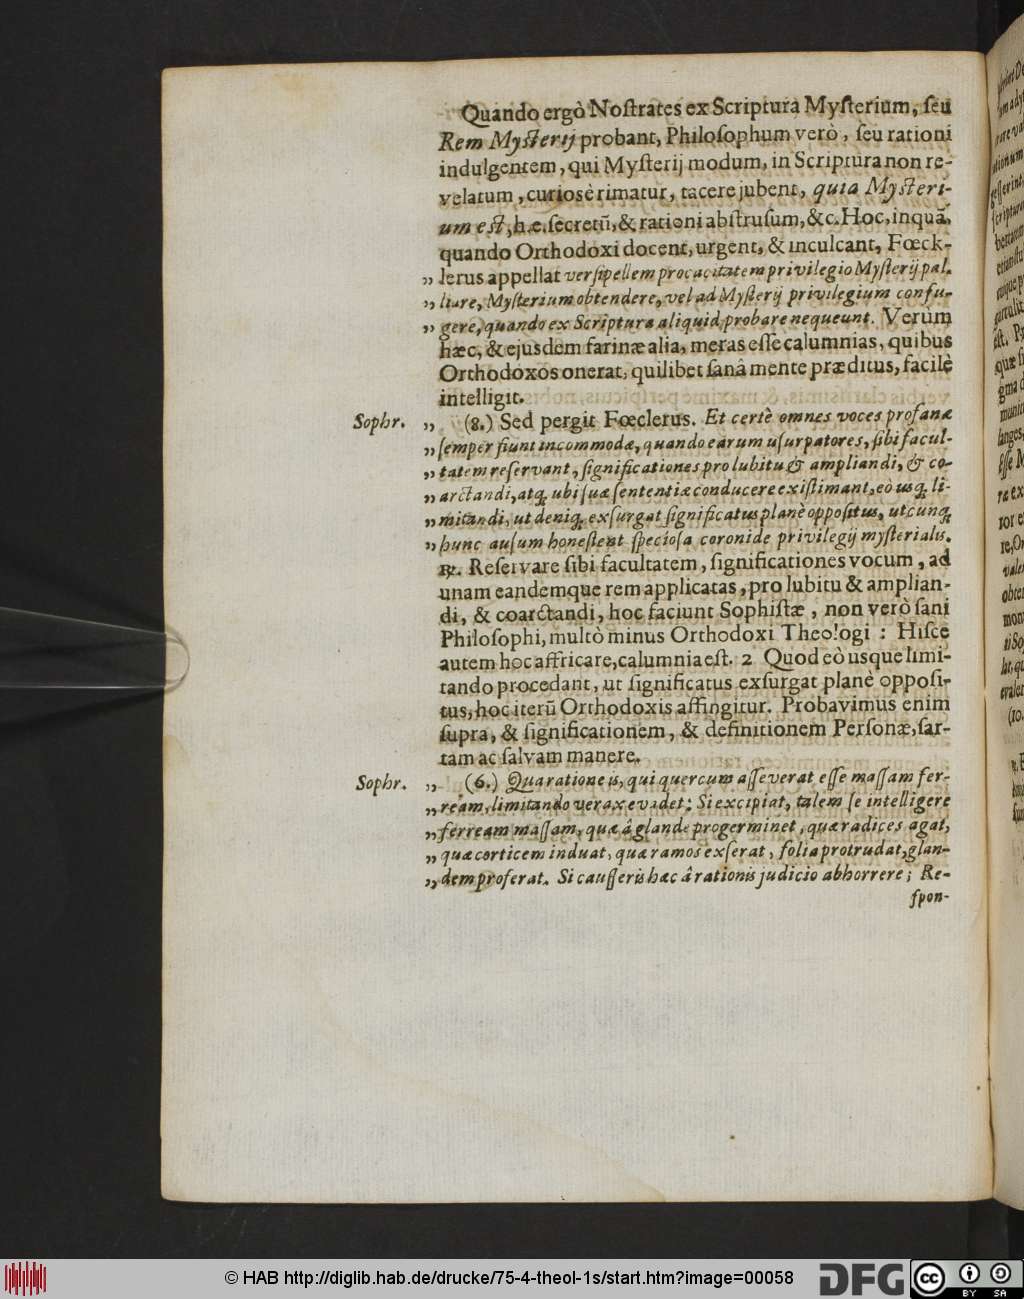 Quando ergò Noſtrates ex Scripturâ Myſterium, ſeu
Rem Myſterij probant, Philoſophum verò, ſeu rationi
indulgentem, qui Myſterij modum, in Scriptura non re-
velatum, curiosè rimatur, tacere jubent, quia Myſteri-
um est, h.e. ſecretũ, & rationi abſtruſum, &c. Hoc, inquã,
quando Orthodoxi docent, urgent, & inculcant, Fœck-
„ lerus appellat verſipellem procacitatem privilegio Myſterij pal-
„ liare, Myſterium obtendere, vel ad Myſterij privilegium confu-
„ gere, quando ex Scriptura aliquid probare nequeunt. Verùm
hæc, & ejusdem farinæ alia, meras eſſe calumnias, quibus
Orthodoxos onerat, quilibet ſanâ mente præditus, facilè
intelligit.
Sophr. „ (8.) Sed pergit Fœclerus. Et certè omnes voces profanæ
„ ſemper fiunt incommodæ, quando earum uſurpatores, ſibi facul-
„ tatem reſervant, ſignificationes pro lubitu & ampliandi, & co-
„ arctandi, atq; ubi ſuæ ſententiæ conducere exiſtimant, eò usq; li-
„ mitandi, ut deniq; exſurgat ſignificatus planè oppoſitus, utcunq;
„ hunc auſum honeſtent ſpecioſa coronide privilegij myſterialis.
℞. Reſervare ſibi facultatem, ſignificationes vocum, ad
unam eandemque rem applicatas, pro lubitu & amplian-
di, & coarctandi, hoc faciunt Sophiſtæ, non verò ſani
Philoſophi, multò minus Orthodoxi Theologi : Hiſce
autem hoc affricare, calumnia eſt. 2 Quod eò usque limi-
tando procedant, ut ſignificatus exſurgat planè oppoſi-
tus, hoc iterũ Orthodoxis affingitur. Probavimus enim
ſupra, & ſignificationem, & definitionem Perſonæ, ſar-
tam ac ſalvam manere.
Sophr. „ (6.) Qua ratione is, qui quercum aſſeverat eſſe maſſam fer-
„ ream, limitando verax evadet; Si excipiat, talem ſe intelligere
„ ferream maſſam, quæ â glande progerminet, quæ radices agat,
„ quæ corticem induat, quæ ramos exſerat, folia protrudat, glan-
„ dem proferat. Si cauſſeris hæc â rationis judicio abhorrere; Re-
ſpon-
© HAB http://diglib.hab.de/drucke/75-4-theol-1s/start.htm?image=00058
DFG
cc BY SA